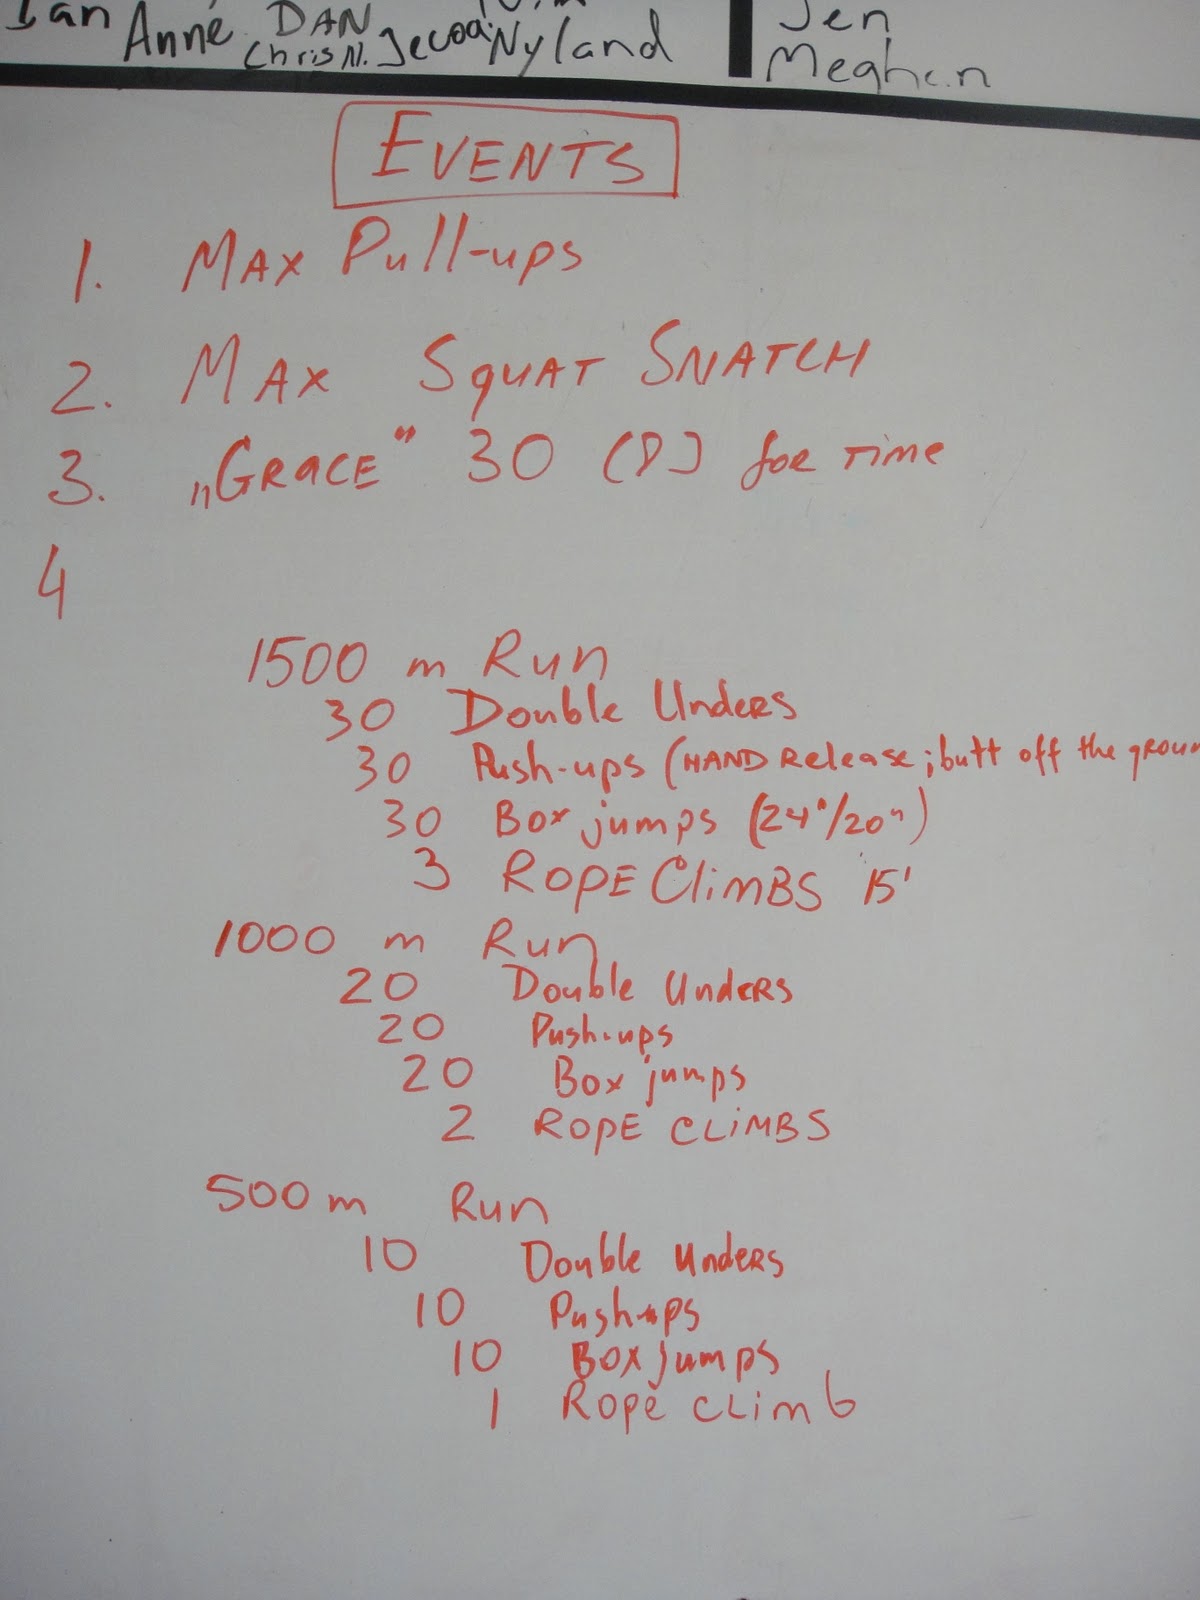 Ian Anne DAN
Chris N. Nyland
Jen
Meghan
EVENTS
1. MAX Pull-ups
2. MAX SQUAT SNATCH
3. „GRACE” 30 for Time
4
1500 m Run
30 Double Unders
30 Push-ups (HAND Release; butt off the groun
30 Box jumps (24"/20")
3 ROPE CLiMBS 15'
1000 m Run
20 Double Unders
20 Push-ups
20 Box jumps
2 ROPE CLiMBS
500 m Run
10 Double Unders
10 Push-ups
10 Box jumps
1 Rope climb